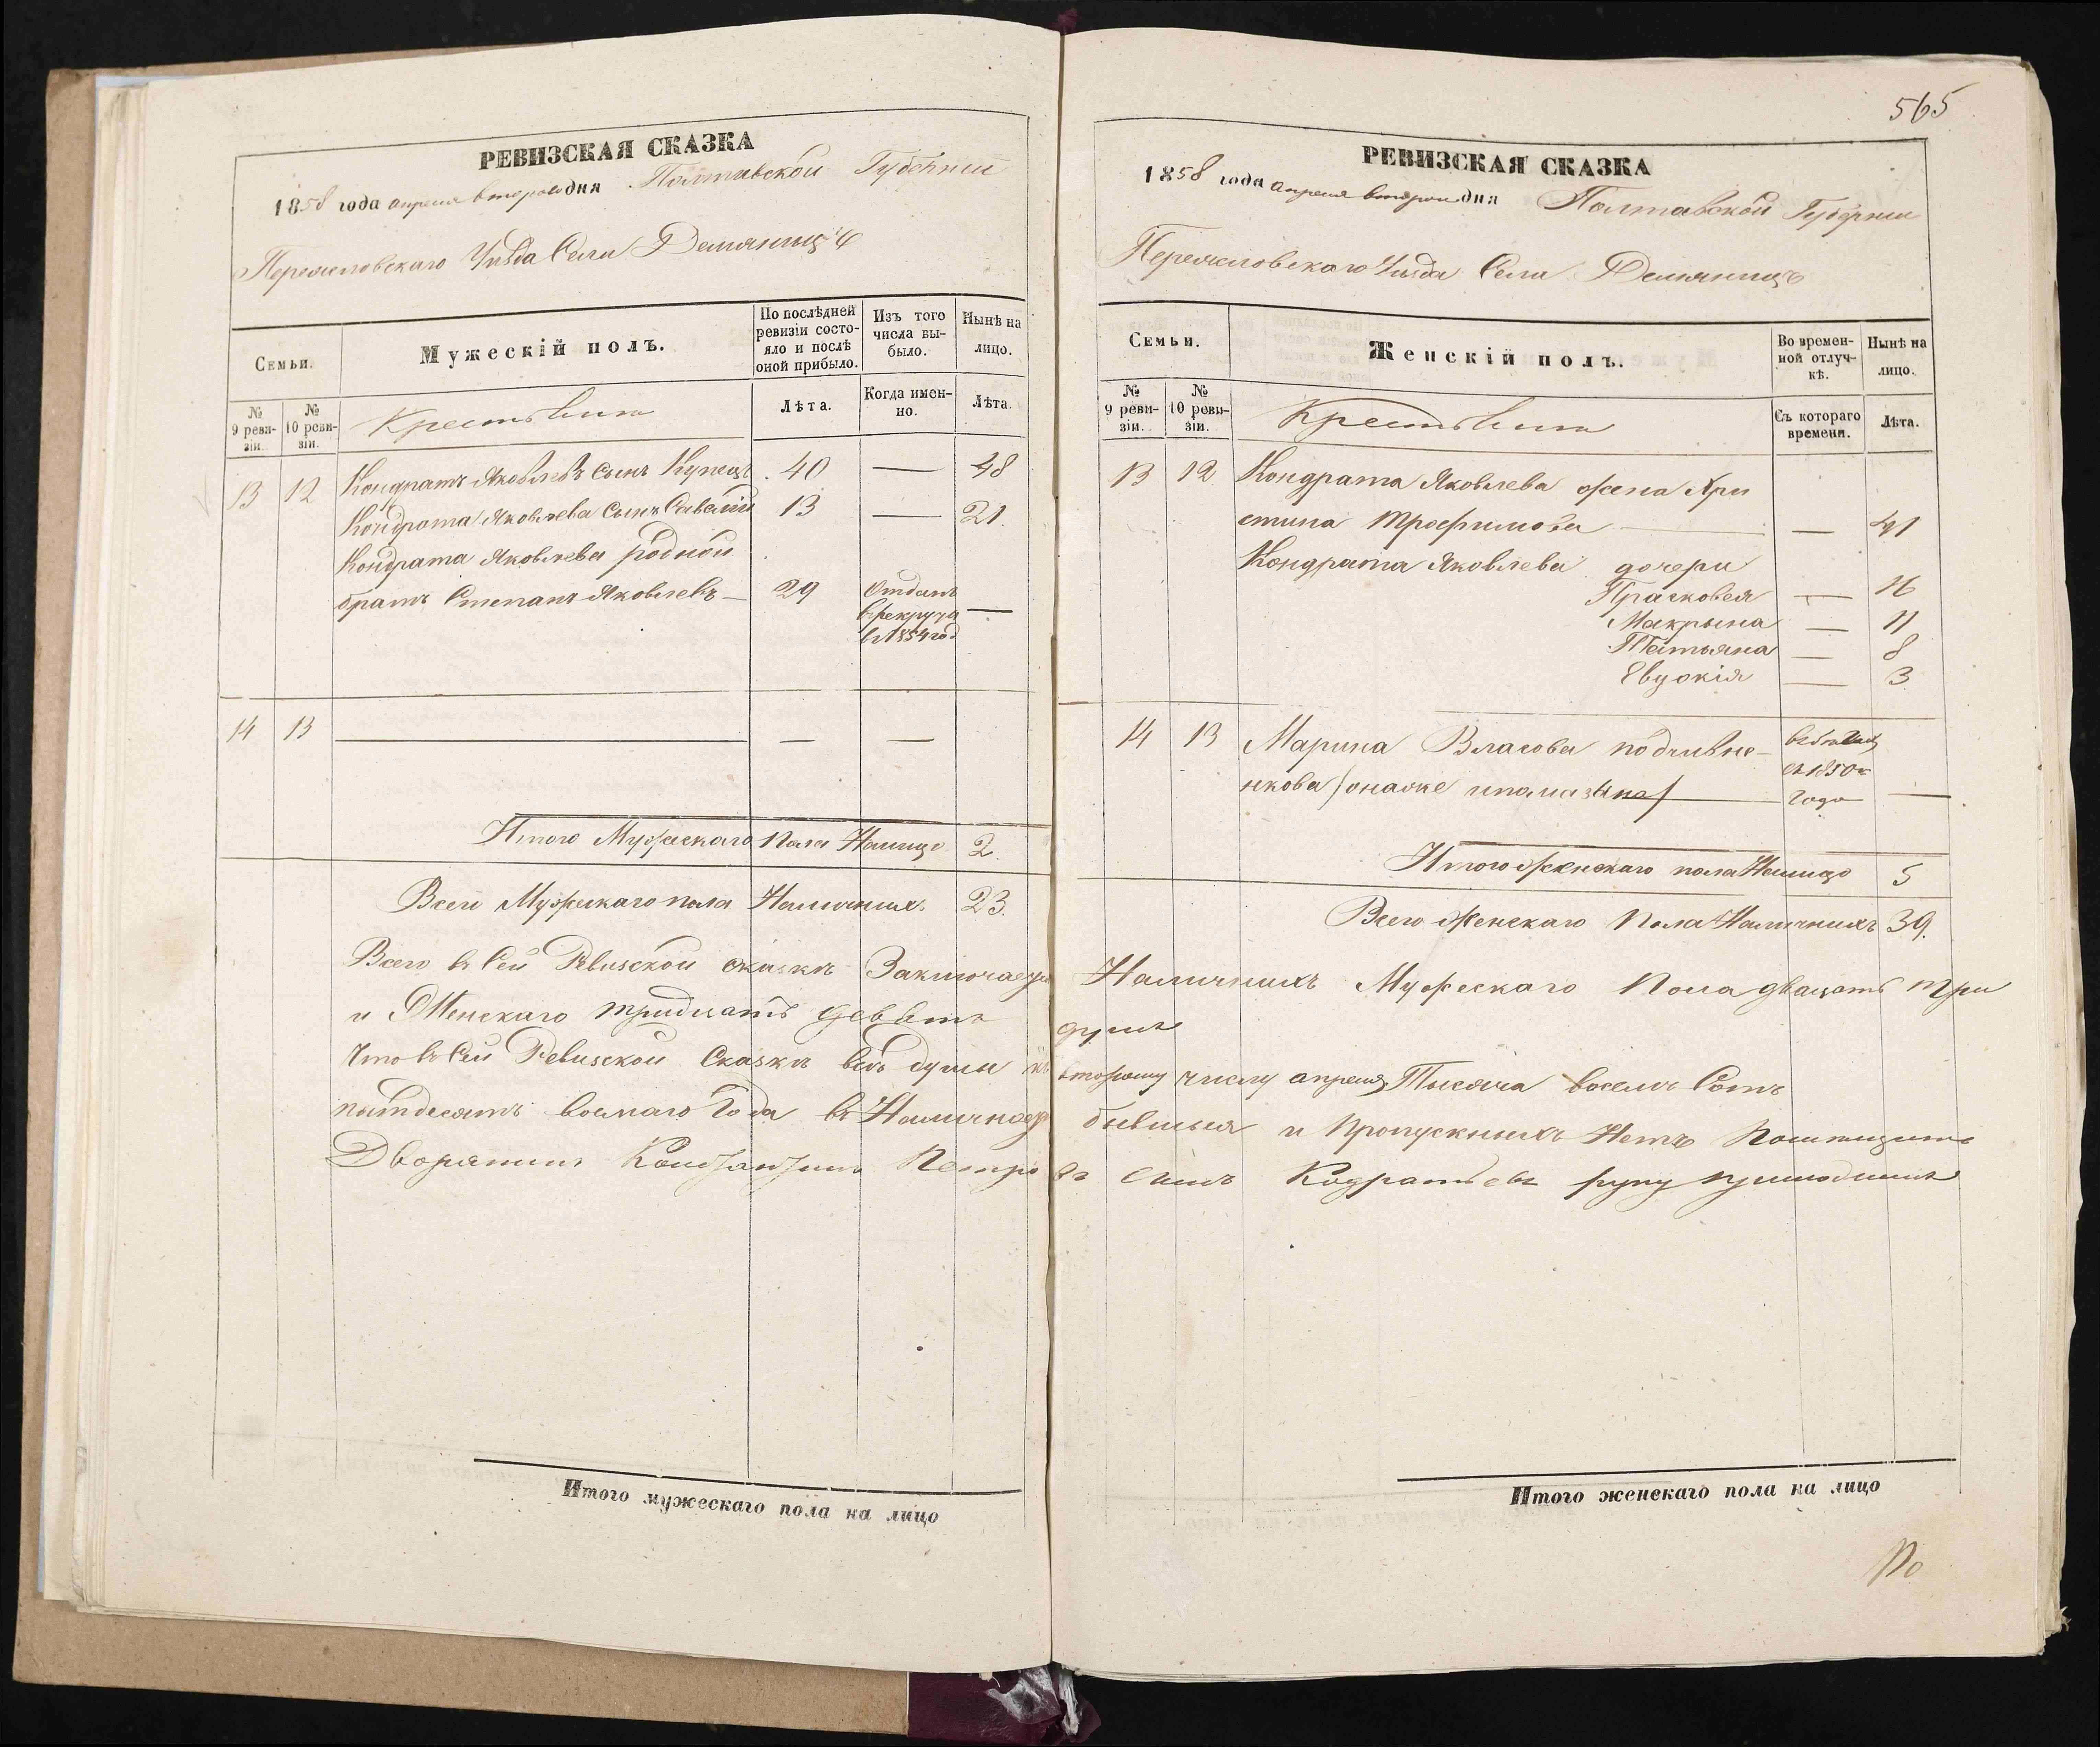 РЕВИЗСКАЯ СКАЗКА
1858 года апреля второго дня Полтавской Губернии
Переясловскаго Уѣзда Села Демянищъ
Семьи.
Мужескій полъ.
По послѣдней ревизіи состояло и послѣ оной прибыло.
Изъ того числа выбыло.
Нынѣ на лицо.
№ 9 ревизіи.
№ 10 ревизіи.
Крестьяне
Лѣта.
Когда именно.
Лѣта.
13 12 Кондратъ Яковлевъ сынъ Купецъ 40 — 48
Кондрата Яковлева сынъ Саватій 13 — 21.
Кондрата Яковлева родной
братъ Степанъ Яковлевъ — 29 Отданъ
в рекруты —
в 1854 год
14 13 — — —
Итого Мужескаго Пола Налицо 2.
Всего Мужескаго пола Наличныхъ 23.
Всего въ Сей Ревизской сказкѣ Заключается
и Женскаго тридцать девять
Что въ Сей Ревизской Сказкѣ всѣ души къ
пятдесятъ восмаго Года въ Налично
Дворянинъ Константинъ Петро
Итого мужескаго пола на лицо
565
РЕВИЗСКАЯ СКАЗКА
1858 года апреля второго дня Полтавской Губернии
Переясловскаго Уѣзда Села Демянищъ
Семьи.
Женскій полъ.
Во временной отлучкѣ.
Нынѣ на лицо.
№ 9 ревизіи.
№ 10 ревизіи.
Крестьяне
Съ котораго времени.
Лѣта.
13 12 Кондрата Яковлева жена Хри
стина Трофимова — — 41
Кондрата Яковлева дочери
Прасковея — 16
Макрына — 11
Татьяна — 8
Евдокія — 3
14 13 Марина Власова подчивне-
нкова /она же
съ 1850
года —
Итого Женскаго пола Налицо 5
Всего Женскаго Пола Наличныхъ 39.
Наличныхъ Мужескаго Пола двацать три
души
второму числу апреля Тысяча восемъ Сотъ
бывшыя и Пропускныхъ Нетъ
въ сынъ Кодратьевъ руку приложилъ
Итого женскаго пола на лицо
По